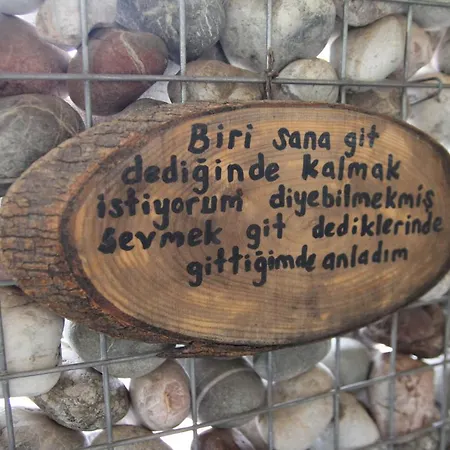 Biri sana git
dediğinde kalmak
istiyorum diyebilmekmiş
sevmek git dediklerinde
gittiğimde anladım